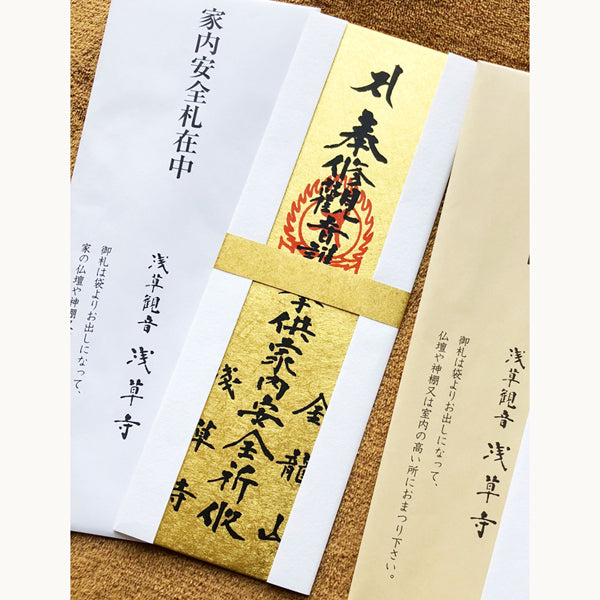 家内安全札在中
御札は袋よりお出しになって、
家の仏壇や神棚又
浅草観音 浅草寺
奉修觀音
供家内安全祈
金龍山
淺草寺
御札は袋よりお出しになって、
仏壇や神棚又は室内の高い所におまつり下さい。
浅草観音 浅草寺